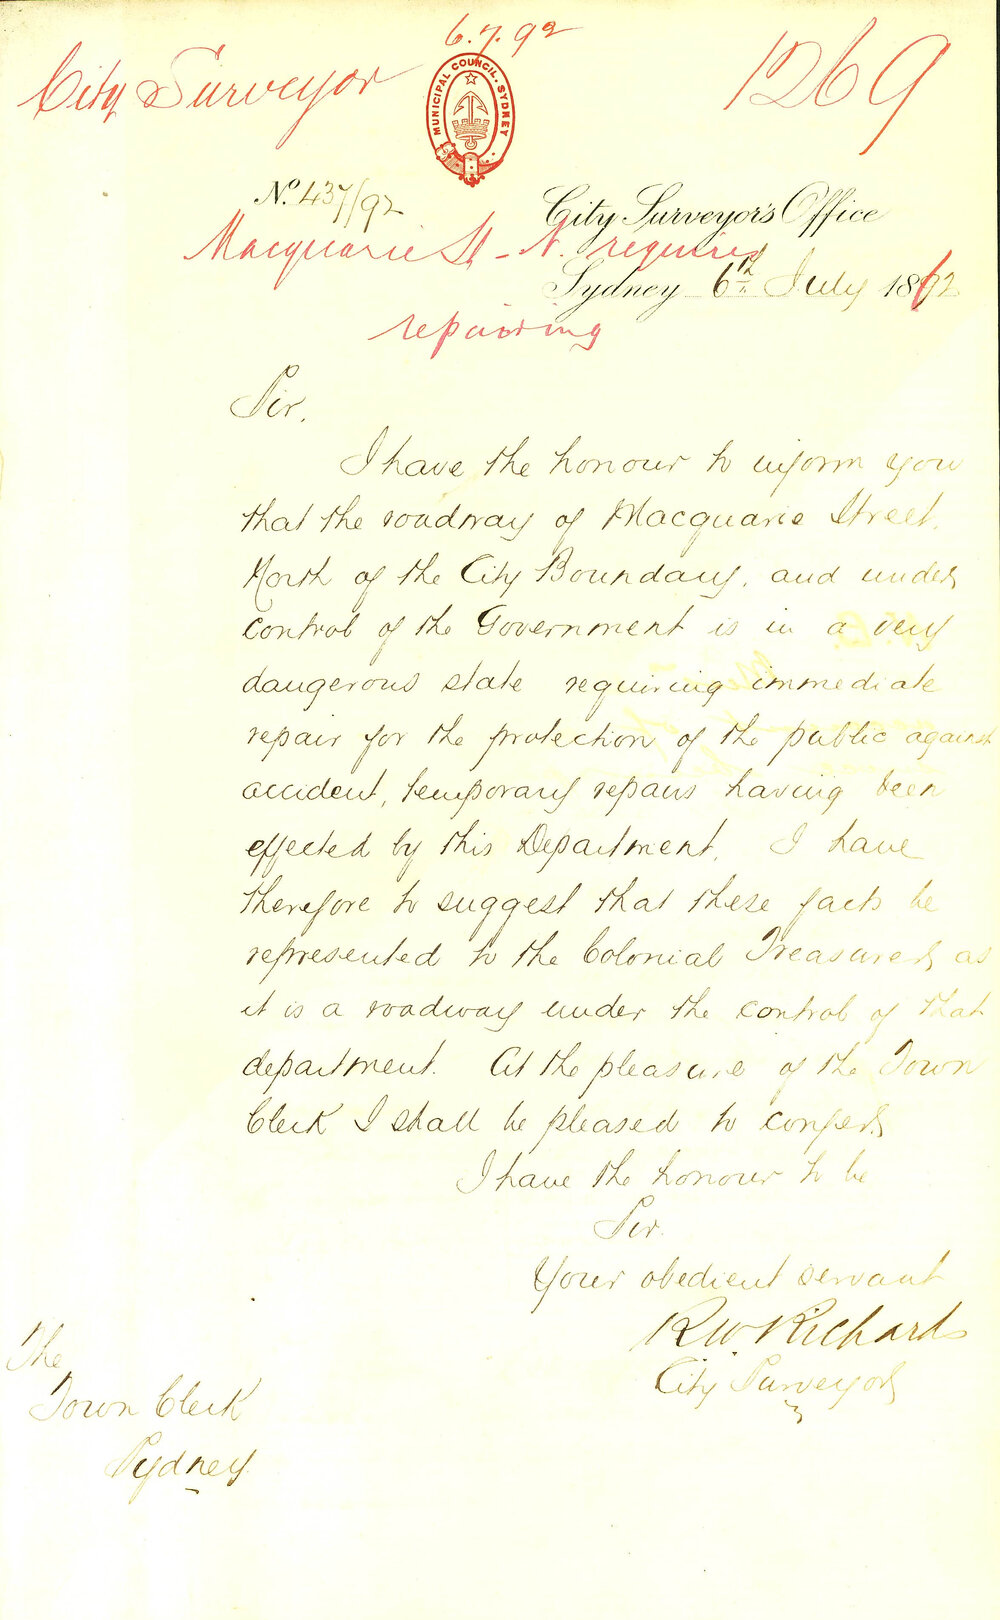 6.7.92
City Surveyor
1269
MUNICIPAL COUNCIL. SYDNEY
No. 437/92
City Surveyor's Office
Macquarie St - N. requires
Sydney 6th July 1892
repairing
Sir,
I have the honour to inform you
that the roadway of Macquarie Street,
North of the City Boundary, and under
control of the Government is in a very
dangerous state requiring immediate
repair for the protection of the public against
accident, temporary repairs having been
effected by this Department. I have
therefore to suggest that these facts be
represented to the Colonial Treasurer, as
it is a roadway under the control of that
department. At the pleasure of the Town
Clerk I shall be pleased to confer.
I have the honour to be
Sir.
Your obedient servant
R W. Richards
City Surveyor
The
Town Clerk
Sydney